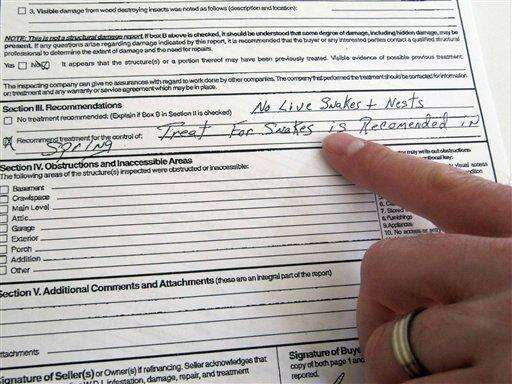 3. Visible damage from wood destroying insects was noted as follows (description and location):
NOTE: This is not a structural damage report. If box B above is checked, it should be understood that some degree of damage, including hidden damage, may be
present. If any questions arise regarding damage indicated by this report, it is recommended that the buyer or any interested parties contact a qualified structural
professional to determine the extent of damage and the need for repairs.
Yes No It appears that the structure(s) or a portion thereof may have been previously treated. Visible evidence of possible previous treatment:
The inspecting company can give no assurances with regard to work done by other companies. The company that performed the treatment should be contacted for information
on treatment and any warranty or service agreement which may be in place.
Section III. Recommendations
No treatment recommended: (Explain if Box B in Section II is checked) No Live Snakes + Nests
Recommend treatment for the control of: Treat For Snakes is Recomended in
Spring
Section IV. Obstructions and Inaccessible Areas
The following areas of the structure(s) inspected were obstructed or inaccessible:
Basement
Crawlspace
Main Level
Attic
Garage
Exterior
Porch
Addition
Other
may write out obstructions
optional key:
visual access
7. Stored
8. Furnishings
9. Appliances
10. No access or
Section V. Additional Comments and Attachments (these are an integral part of the report)
Attachments
Signature of Seller(s) or Owner(s) if refinancing. Seller acknowledges
infestation, damage, repair, and treatment
Signature of Buye
copy of both page 1 and
reported.